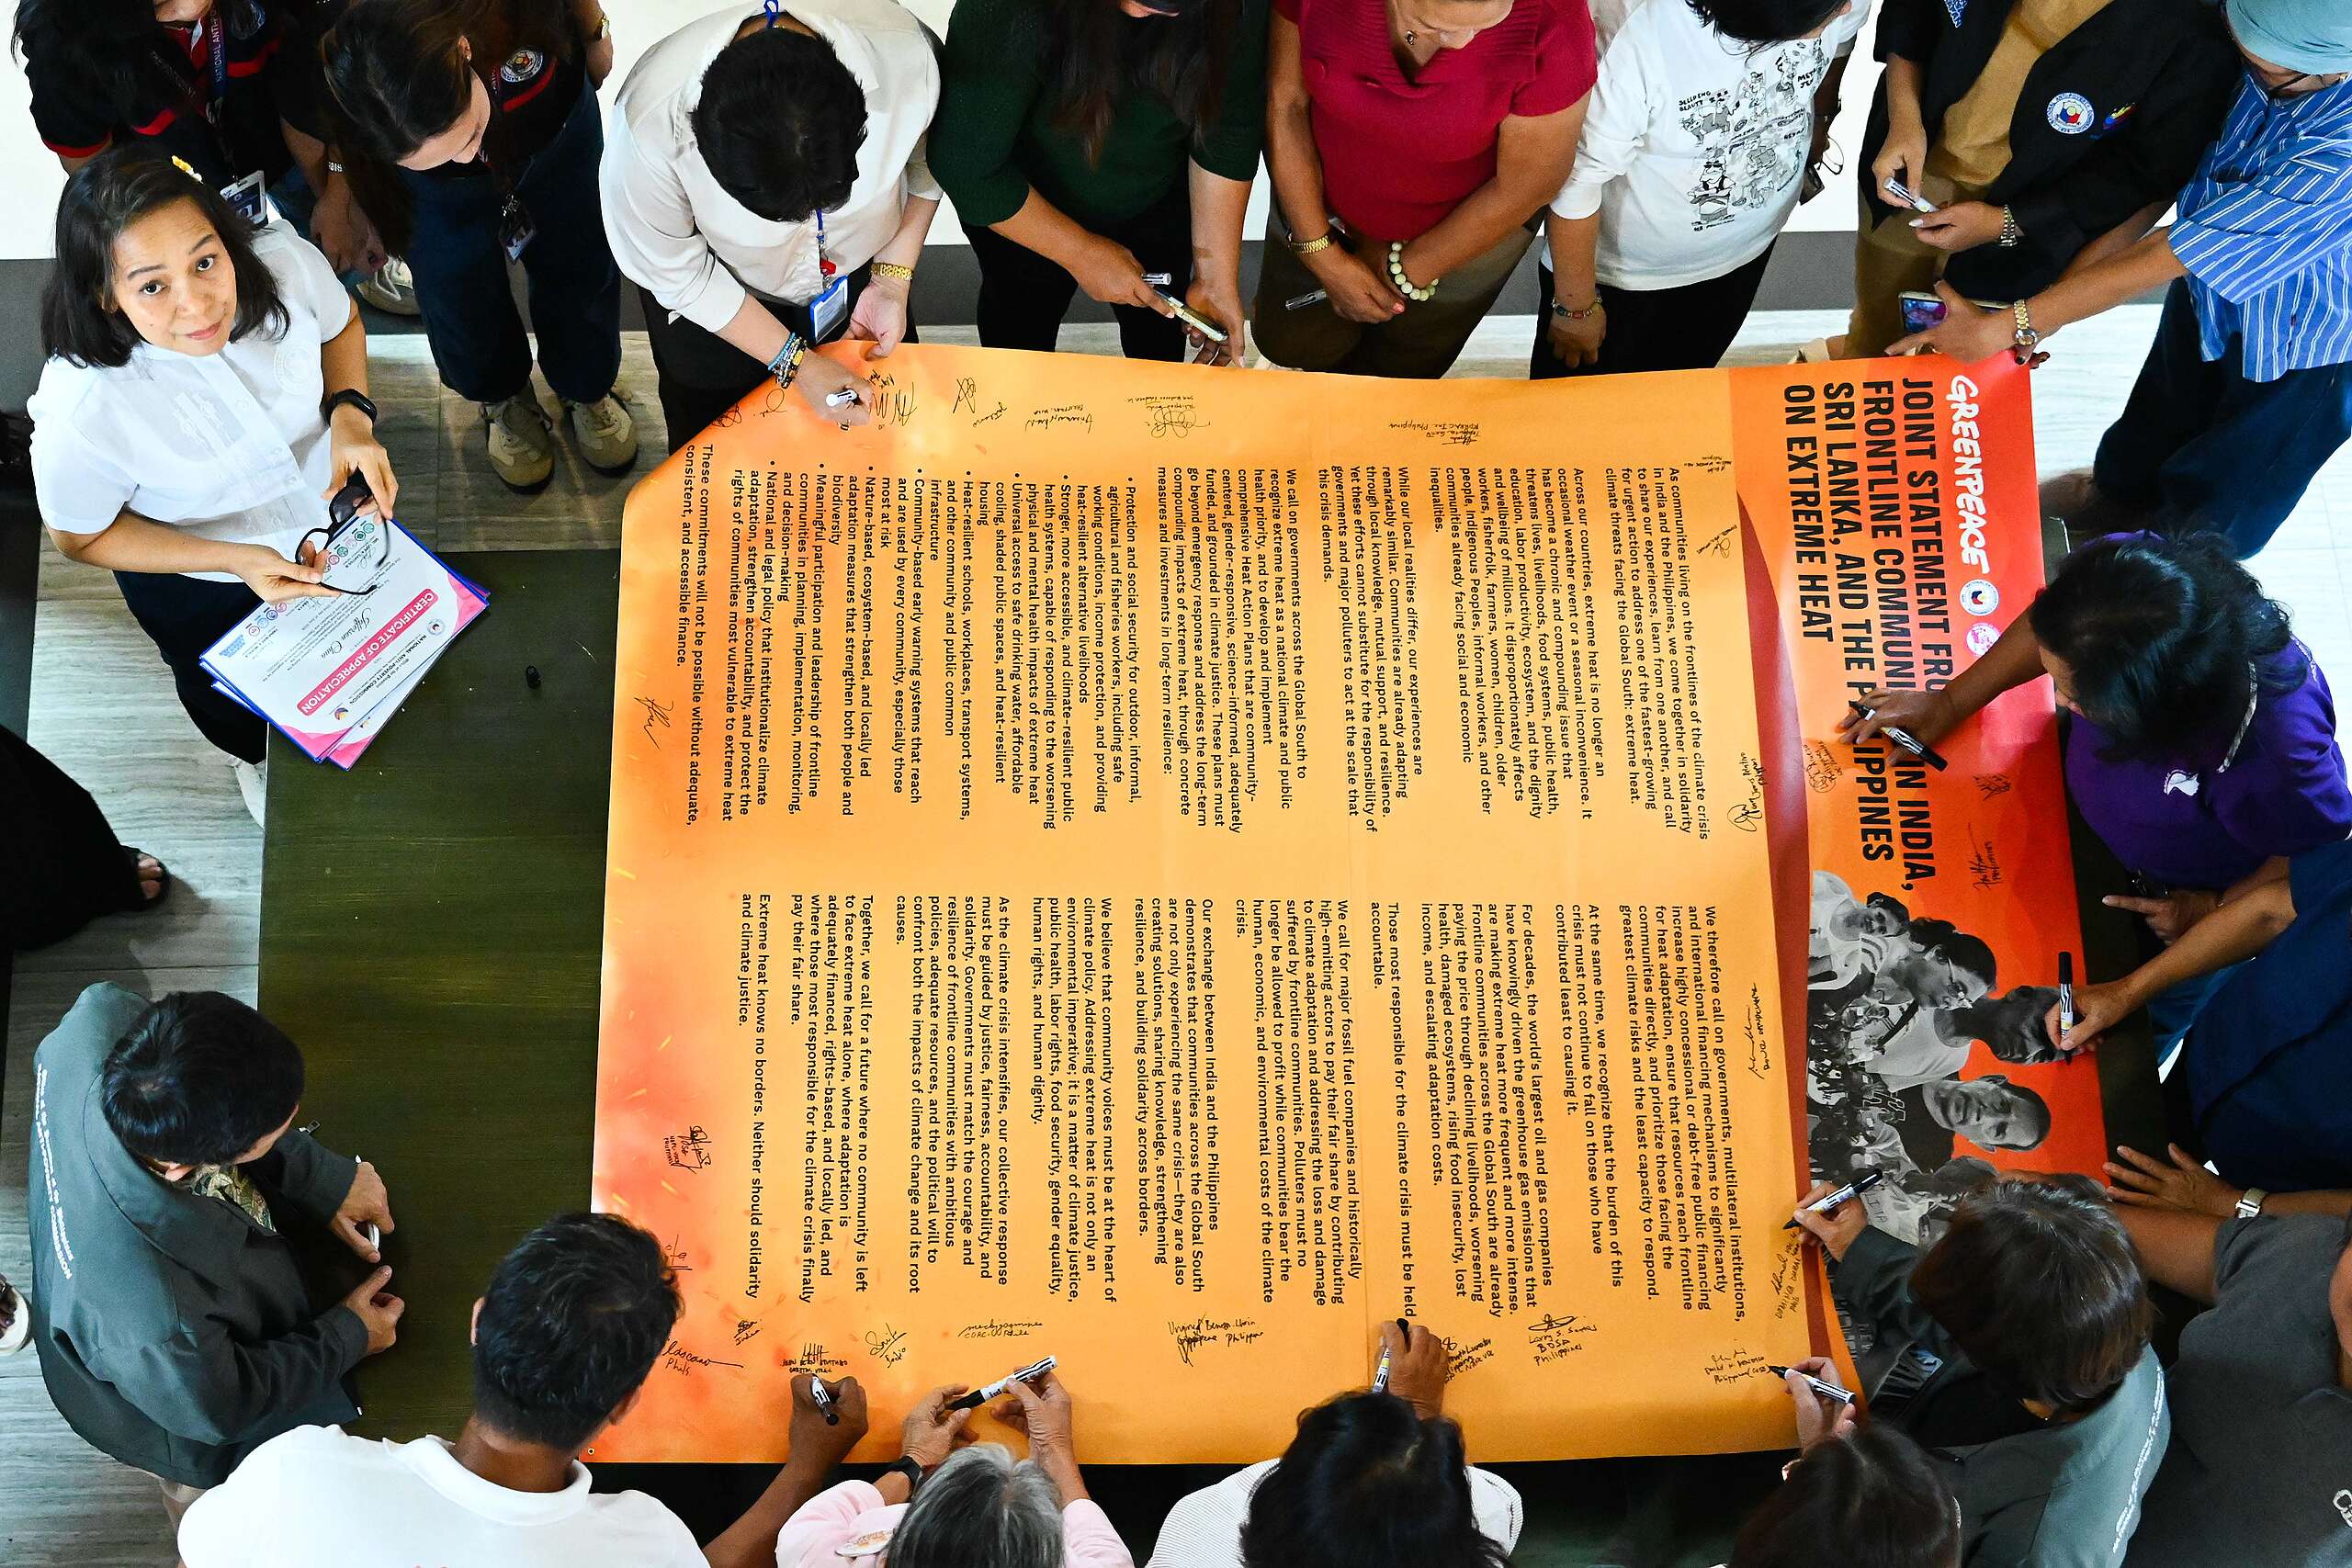 GREENPEACE
JOINT STATEMENT FRO
FRONTLINE COMMUNI IN INDIA,
SRI LANKA, AND THE P ILIPPINES
ON EXTREME HEAT
As communities living on the frontlines of the climate crisis
in India and the Philippines, we come together in solidarity
to share our experiences, learn from one another, and call
for urgent action to address one of the fastest-growing
climate threats facing the Global South: extreme heat.
Across our countries, extreme heat is no longer an
occasional weather event or a seasonal inconvenience. It
has become a chronic and compounding issue that
threatens lives, livelihoods, food systems, public health,
education, labor productivity, ecosystem, and the dignity
and wellbeing of millions. It disproportionately affects
workers, fisherfolk, farmers, women, children, older
people, Indigenous Peoples, informal workers, and other
communities already facing social and economic
inequalities.
While our local realities differ, our experiences are
remarkably similar. Communities are already adapting
through local knowledge, mutual support, and resilience.
Yet these efforts cannot substitute for the responsibility of
governments and major polluters to act at the scale that
this crisis demands.
We call on governments across the Global South to
recognize extreme heat as a national climate and public
health priority, and to develop and implement
comprehensive Heat Action Plans that are community-
centered, gender-responsive, science-informed, adequately
funded, and grounded in climate justice. These plans must
go beyond emergency response and address the long-term
compounding impacts of extreme heat, through concrete
measures and investments in long-term resilience:
• Protection and social security for outdoor, informal,
agricultural and fisheries workers, including safe
working conditions, income protection, and providing
heat-resilient alternative livelihoods
• Stronger, more accessible, and climate-resilient public
health systems, capable of responding to the worsening
physical and mental health impacts of extreme heat
• Universal access to safe drinking water, affordable
cooling, shaded public spaces, and heat-resilient
housing
• Heat-resilient schools, workplaces, transport systems,
and other community and public common
infrastructure
• Community-based early warning systems that reach
and are used by every community, especially those
most at risk
• Nature-based, ecosystem-based, and locally led
adaptation measures that strengthen both people and
biodiversity
• Meaningful participation and leadership of frontline
communities in planning, implementation, monitoring,
and decision-making
• National and legal policy that institutionalize climate
adaptation, strengthen accountability, and protect the
rights of communities most vulnerable to extreme heat
These commitments will not be possible without adequate,
consistent, and accessible finance.
We therefore call on governments, multilateral institutions,
and international financing mechanisms to significantly
increase highly concessional or debt-free public financing
for heat adaptation, ensure that resources reach frontline
communities directly, and prioritize those facing the
greatest climate risks and the least capacity to respond.
At the same time, we recognize that the burden of this
crisis must not continue to fall on those who have
contributed least to causing it.
For decades, the world's largest oil and gas companies
have knowingly driven the greenhouse gas emissions that
are making extreme heat more frequent and more intense.
Frontline communities across the Global South are already
paying the price through declining livelihoods, worsening
health, damaged ecosystems, rising food insecurity, lost
income, and escalating adaptation costs.
Those most responsible for the climate crisis must be held
accountable.
We call for major fossil fuel companies and historically
high-emitting actors to pay their fair share by contributing
to climate adaptation and addressing the loss and damage
suffered by frontline communities. Polluters must no
longer be allowed to profit while communities bear the
human, economic, and environmental costs of the climate
crisis.
Our exchange between India and the Philippines
demonstrates that communities across the Global South
are not only experiencing the same crisis—they are also
creating solutions, sharing knowledge, strengthening
resilience, and building solidarity across borders.
We believe that community voices must be at the heart of
climate policy. Addressing extreme heat is not only an
environmental imperative; it is a matter of climate justice,
public health, labor rights, food security, gender equality,
human rights, and human dignity.
As the climate crisis intensifies, our collective response
must be guided by justice, fairness, accountability, and
solidarity. Governments must match the courage and
resilience of frontline communities with ambitious
policies, adequate resources, and the political will to
confront both the impacts of climate change and its root
causes.
Together, we call for a future where no community is left
to face extreme heat alone, where adaptation is
adequately financed, rights-based, and locally led, and
where those most responsible for the climate crisis finally
pay their fair share.
Extreme heat knows no borders. Neither should solidarity
and climate justice.
NATIONAL ANTI-POVERTY COMMISSION
CERTIFICATE OF APPRECIATION
BDSA
Philippines
India